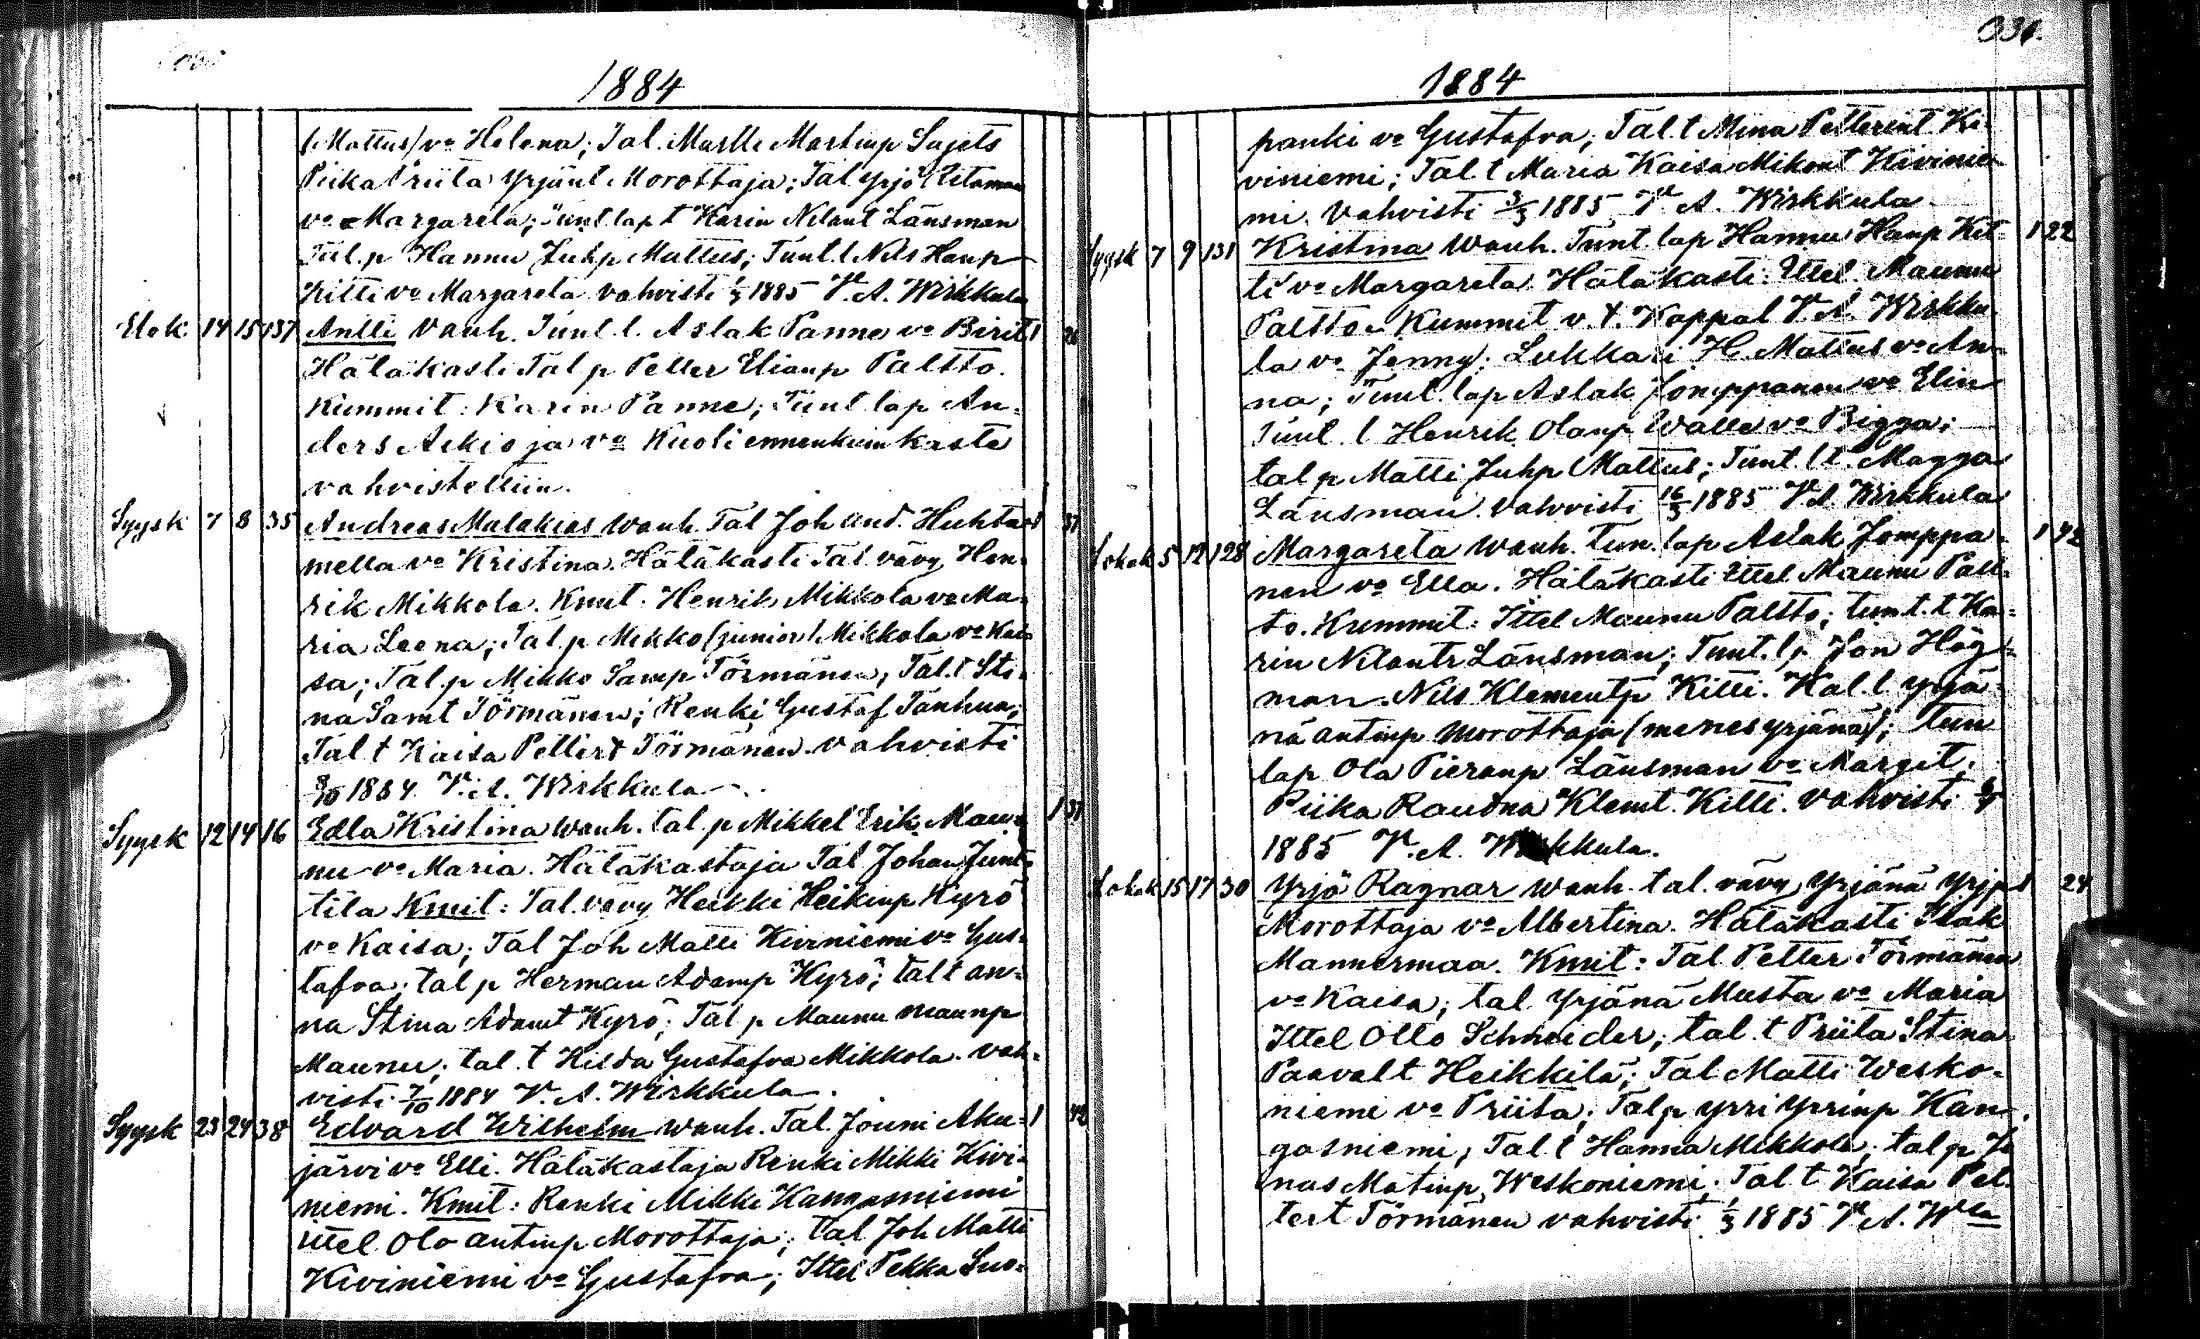 1884
(Mattus) vo Helena; Tal. Maslle Martinp Sajets
Piika Priita Yrjänt Morottaja; Tal Yrjö
vo Margareta; Tunt lap t Karin Nilant Länsman
Tal. p Hannu Juhp Mattus; Tunt. l Nils Hanp
Kitti vo Margareta vahvisti 1885 V. A. Wirkkula
Elok 14 15 137 Antti Vanh. Tunt. l. Aslak Panne vo Birit 1 26
Hätäkasti Tal p Petter Elianp Paltto.
Kummit: Karin Panne; Tunt lap An-
ders Aikio ja vo Kuoli ennenkuin kaste
vahvistettiin.
Syysk 7 8 35 Andreas Malakias Wanh. Tal Joh And. Huhta- 1 37
mella vo Kristina. Hätäkasti Tal. vävy Hen-
rik Mikkola. Kmit: Henrik Mikkola vo Ma-
ria Leena; Tal. p Mikko (junior) Mikkola vo Kai-
sa; Tal. p Mikko Samp Törmänen; Tal. t Sti-
na Samt Törmänen; Renki Gustaf Tänhua;
Tal t Kaisa Pettert Törmänen. vahvisti
9/10 1884 V. A. Wirkkula
Syysk 12 14 16 Edla Kristina Wanh. tal. p Mikkel Erik Mau- 1 37
nu vo Maria. Hätäkastaja Tal Johan Junt-
tila Kmit: Tal. vävy Heikki Heikinp Kyrö
vo Kaisa; Tal Joh Matti Kiviniemi vo Gus-
tafva; tal p Herman Adamp Kyrö; tal t An-
na Stina Adamt Kyrö; Tal p Maunu Maunp
Maunu; tal. t Hilda Gustafva Mikkola. vah-
visti 7/10 1884 V. A. Wirkkula.
Syysk 23 24 38 Edvard Wilhelm Wanh. Tal. Jouni Aku- 1 42
järvi vo Elli. Hätäkastaja Renki Mikki Kivi-
niemi. Kmit: Renki Mikki Kangasniemi
Ittel Olo Antinp Morottaja; Tal Joh Matti
Kiviniemi vo Gustafva; Ittel Pekka Suo-
1884
panki vo Gustafva; Tal. t Mina Petterint Ki-
viniemi; Tal. t Maria Kaisa Mikont Kivinie-
mi. Vahvisti 1885 V. A. Wirkkula
Syysk 7 9 131 Kristina Wanh. Tunt. lap Hannu Hanp Kit- 1 22
ti vo Margareta. Hätäkasti: Ittel Maunu
Paltto. Kummit v. t. Kappal V. A. Wirkku-
la vo Jenny; Lukkari H. Mattus vo An-
na; Tunt. lap Aslak Jomppanen vo Elin
Tunt. l Henrik Olanp Walle vo Bigga;
tal p Matti Juhp Mattus; Tunt. l t. Magga
Länsman. Vahvisti 16/3 1885 V A. Wirkkula
Lokak 5 12 128 Margareta Wanh. Tun. lap Aslak Jomppa- 1 42
nen vo Ella. Hätäkasti Ittel Maunu Palt-
to. Kummit: Ittel Maunu Paltto; tunt. t Ka-
rin Nilantr Länsman; Tunt. l p Jon Hög-
man. Nils Klementp Kitti. Kal. l Yrjä-
nä Antinp Morottaja (menes yrjänä); Tun
lap Ola Pieranp Länsman vo Margit.
Piika Raudna Klemt. Kitti. Vahvisti
1885 V. A. Wirkkula.
Lokak 15 17 30 Yrjö Ragnar Wanh. tal. vävy Yrjänä Yrjp 1 24
Morottaja vo Albertina. Hätäkasti Isak
Mannermaa. Kmit: Tal Petter Törmänen
vo Kaisa; tal Yrjänä Musta vo Maria
Ittel Ollo Schneider; tal. t Priita Stina
Paavalt Heikkilä; Tal Matti Wesko-
niemi vo Priita; Tal p Yrri Yrrinp Kan-
gasniemi; Tal. t Hanna Mikkola; tal p Jo-
nas Matinp Weskoniemi; Tal t Kaisa Pet-
tert Törmänen vahvisti 1/3 1885 V A. Wla